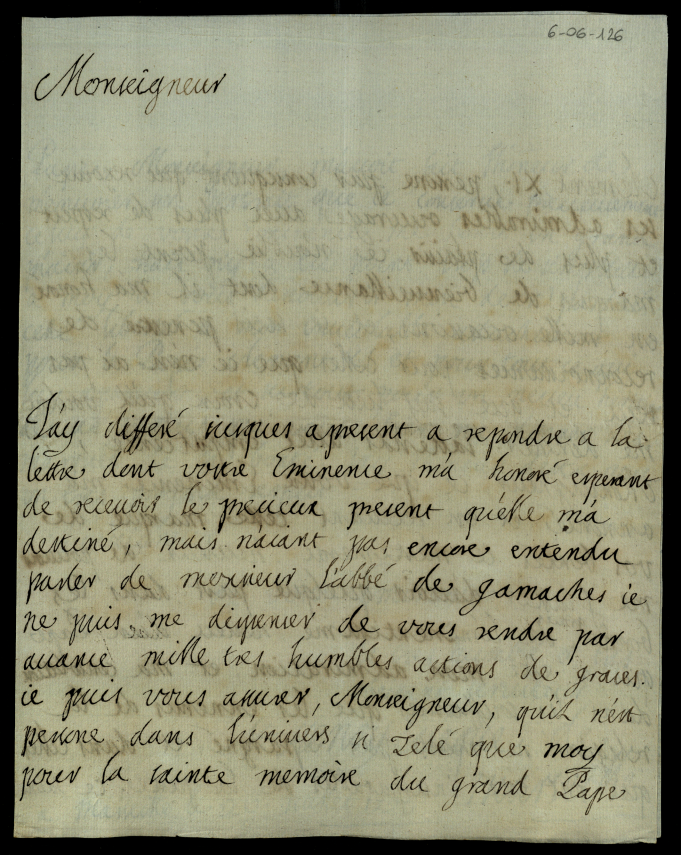 6-06-126
Monseigneur
J'ay differé jusques apresent a repondre a la
lettre dont vostre Eminence m'a honoré esperant
de recevoir le precieux present qu'elle m'a
destiné, mais n'aiant pas encore entendu
parler de monsieur l'abbé de gamaches ie
ne puis me dispenser de vous rendre par
avance mille tres humbles actions de graces.
ie puis vous assurer, Monseigneur, qu'il n'est
persone dans l'univers si zelé que moy
pour la sainte memoire du grand Pape